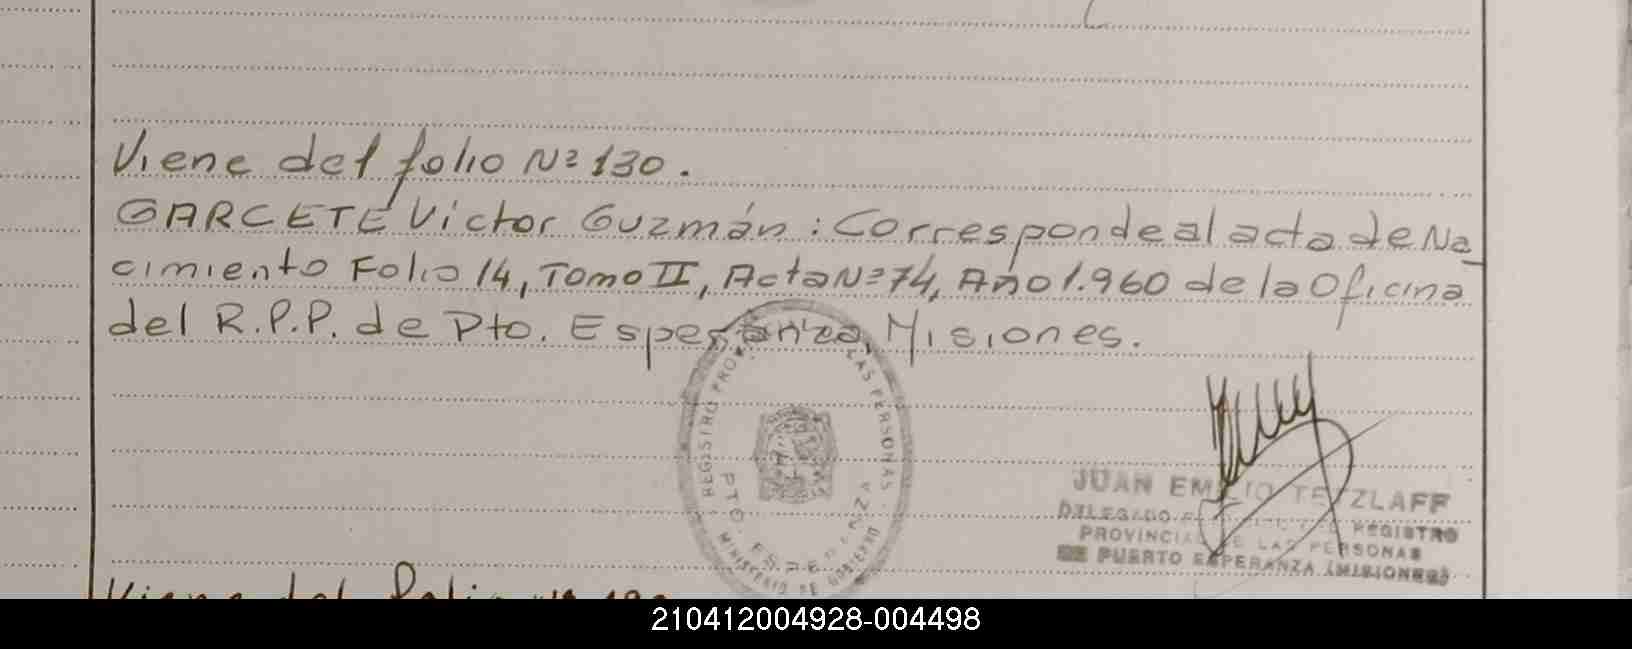 Viene del folio Nº 130.
GARCETE Victor Guzmán: Corresponde al acta de Na
cimiento Folio 14, Tomo II, Acta Nº 74, Año 1.960 de la Oficina
del R.P.P. de Pto. Esperanza, Misiones.
REGISTRO PROV. LAS PERSONAS
PTO. ESPERANZA
MINISTERIO DE GOBIERNO
JUAN EMILIO TETZLAFF
DELEGADO REGISTRO
PROVINCIAL DE LAS PERSONAS
DE PUERTO ESPERANZA (MISIONES)
Viene del folio
210412004928-004498